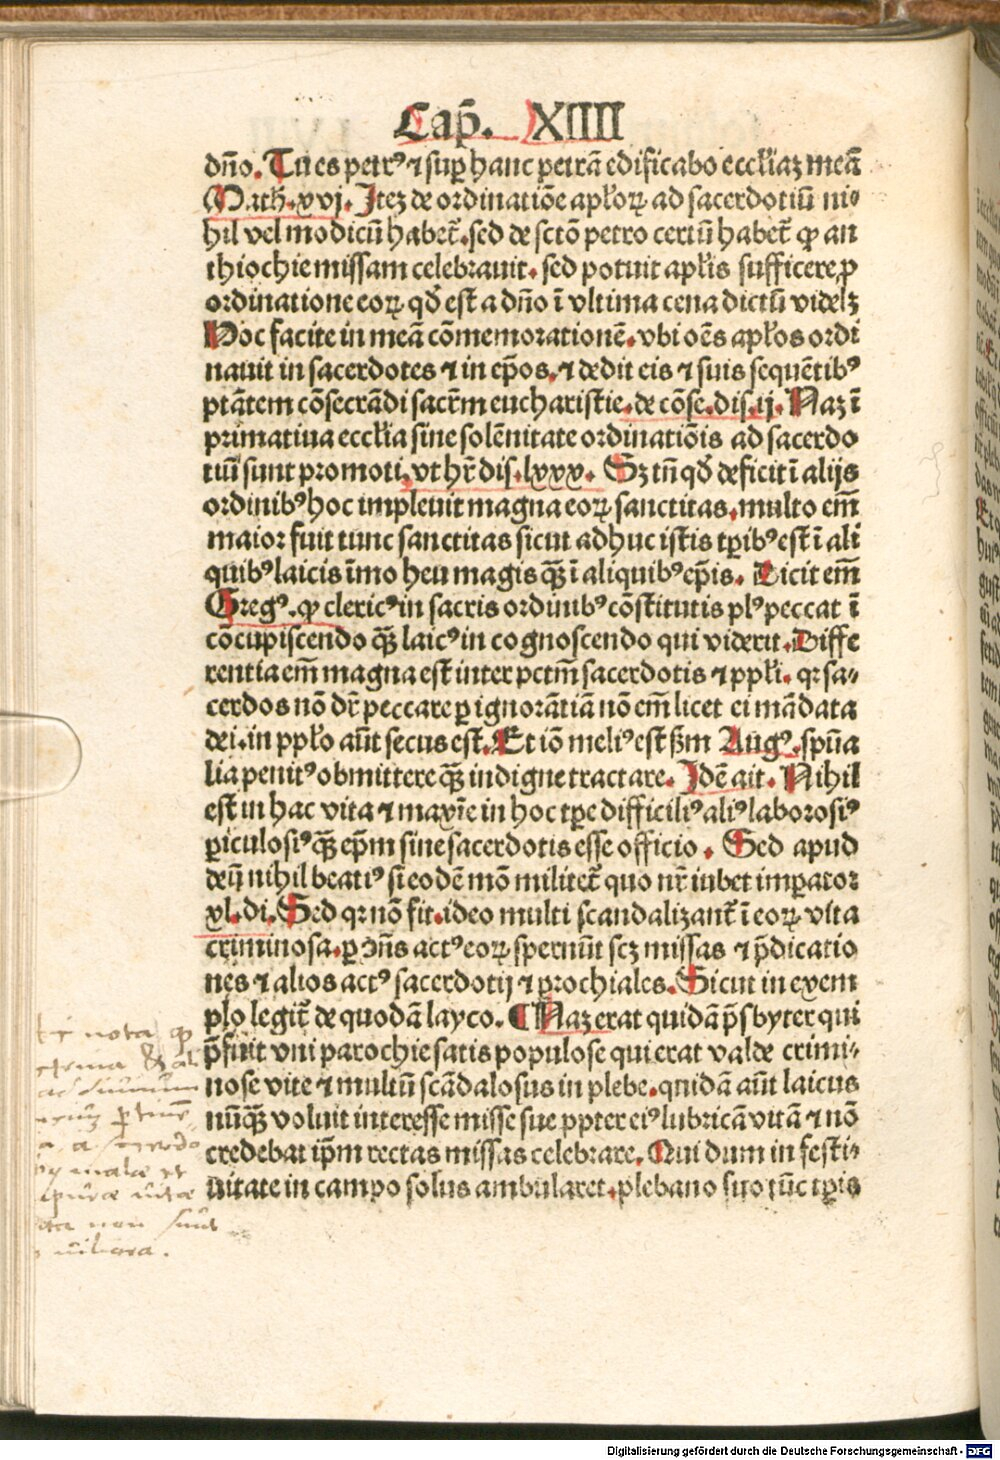 Cap̄. XIIII
dn̄o. Tu es petrꝰ ⁊ sup̱ hanc petrā edificabo eccl̄iaꝫ meā
Math. xvj. Iteꝫ de ordinatiōe apl̄oꝝ ad sacerdotiū ni⸗
hil vel modicū habet̄. sed de sctō petro certū habet̄ ꝙ an
thiochie missam celebrauit. sed potuit apl̄is sufficere, ꝓ
ordinatione eoꝝ qd̄ est a dn̄o ī vltima cena dictū videlꝫ
Hoc facite in meā cōmemorationē. vbi oēs apl̄os ordi
nauit in sacerdotes ⁊ in ep̄os. ⁊ dedit eis ⁊ suis sequētibꝰ
ptātem cōsecrādi sacr̄m eucharistie. de cōse. dis. ij. Naꝫ ī
primatiua eccl̄ia sine solēnitate ordinatiōis ad sacerdo
tiū sunt promoti. vt hr̄ dis. lxxx. Sꝫ tn̄ qd̄ deficit ī alijs
ordinibꝰ hoc impleuit magna eoꝝ sanctitas. multo em̄
maior fuit tunc sanctitas sicut adhuc istis tꝑibꝰ est ī ali
quibꝰ laicis īmo heu magis qꝫ̄ ī aliquibꝰ ep̄is. Dicit em̄
Gregꝰ. ꝙ clericꝰ in sacris ordinibꝰ cōstitutis plꝰ peccat ī
cōcupiscendo qꝫ̄ laicꝰ in cognoscendo qui viderit. Diffe
rentia em̄ magna est inter pctm̄ sacerdotis ⁊ ppl̄i. qꝛ sa⸗
cerdos nō dr̄ peccare ꝑ ignorātiā nō em̄ licet ei mādata
dei. in ppl̄o aūt secus est. Et iō meliꝰ est ẜm Augꝰ. spūa
lia penitꝰ obmittere qꝫ̄ indigne tractare. Idē ait. Nihil
est in hac vita ⁊ maxīe in hoc tꝑe difficiliꝰ aliꝰ laborosiꝰ
ꝑiculosiꝰ qꝫ̄ ep̄m sine sacerdotis esse officio. Sed apud
deū nihil beatiꝰ si eodē mō militet̄ quo nr̄ iubet imꝑator
xl. di. Sed qꝛ nō fit. ideo multi scandalizant̄ ī eoꝝ vita
criminosa. ꝑ ↄn̄s actꝰ eoꝝ spernūt scꝫ missas ⁊ p̄dicatio
nes ⁊ alios actꝰ sacerdotij ⁊ ꝑrochiales. Sicut in exem
plo legit̄ de quodā layco. ¶ Naꝫ erat quidā p̄sbyter qui
p̄fuit vni parochie satis populose qui erat valde crimi⸗
nose vite ⁊ multū scādalosus in plebe. quidā aūt laicus
nūqꝫ̄ voluit interesse misse sue ꝓpter eiꝰ lubricā vitā ⁊ nō
credebat ip̄m rectas missas celebrare. Qui dum in festi⸗
uitate in campo solus ambularet. plebano suo tūc tꝑis
nota ꝙ
malae et
vitae
non sunt
Digitalisierung gefördert durch die Deutsche Forschungsgemeinschaft - DFG